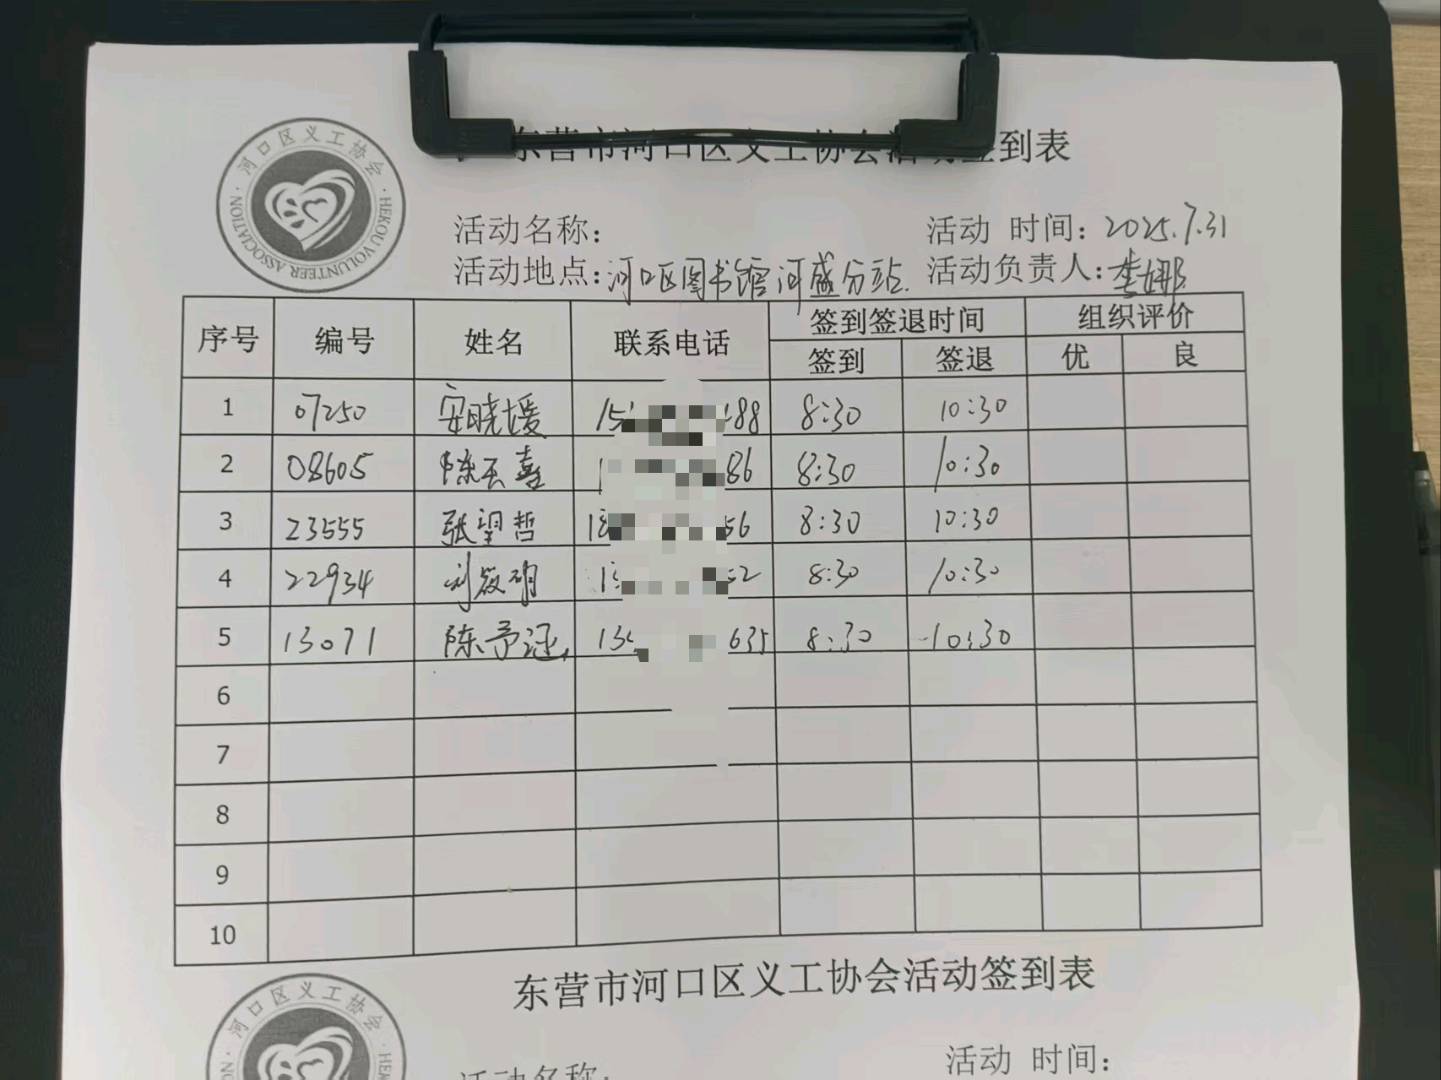 东营市河口区义工协会活动签到表
河口区义工协会
HEKOU VOLUNTEER ASSOCIATION
活动名称： 活动 时间：2025.7.31
活动地点：河口区图书馆河盛分站. 活动负责人：李娜
序号 编号 姓名 联系电话 签到签退时间 组织评价
签到 签退 优 良
1 07250 安晓媛 15 88 8:30 10:30
2 08605 陈天喜 1 86 8:30 10:30
3 23555 张望哲 18 56 8:30 10:30
4 22934 13 52 8:30 10:30
5 13071 陈予涵 13 635 8:30 10:30
6
7
8
9
10
东营市河口区义工协会活动签到表
河口区义工协会
活动名称： 活动 时间：